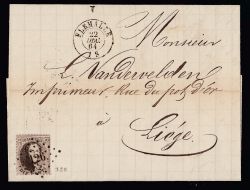 FLEMALLE
22
DÉC.
64
7 S
Monsieur
L. Vandervelden
Imprimeur, Rue du pot d'or
à
Liége.